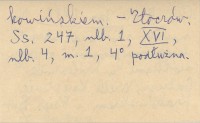 kowińskiem. - Złoczów.
Ss. 247, nlb. 1, XVI,
nlb. 4, m. 1, 4° podłużna.